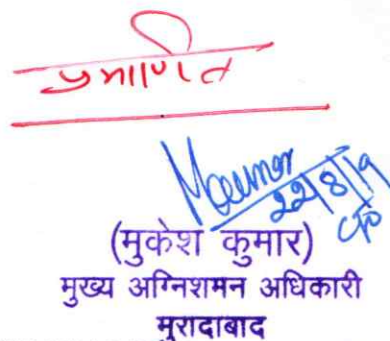 प्रमाणित
22/8/19
(मुकेश कुमार)
मुख्य अग्निशमन अधिकारी
मुरादाबाद